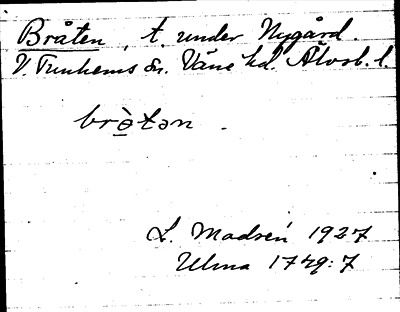 Bråten, t. under Nygård.
V. Tunhems sn. Väne hd. Älvsb. l.
brò̠tən.
L. Madsén 1927
Ulma 1779:7